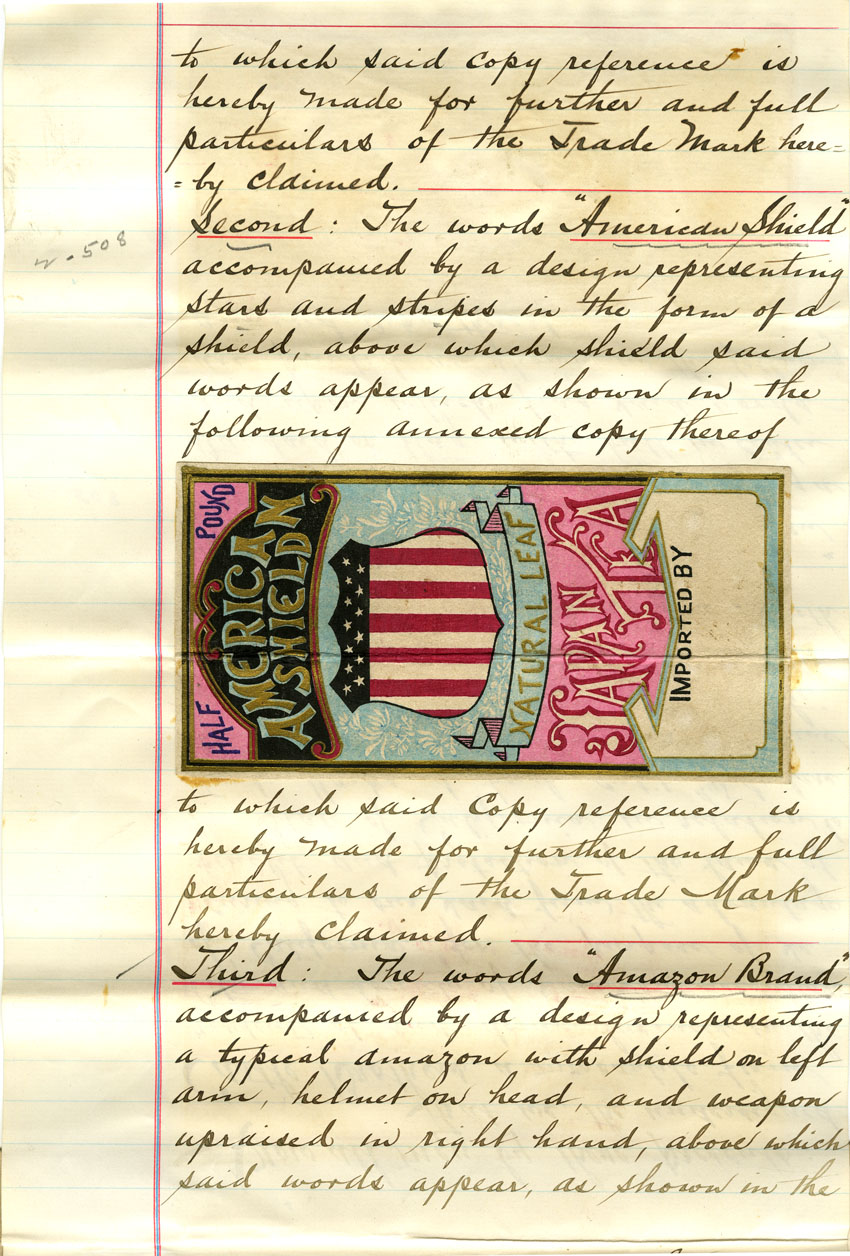 to which said copy reference is
hereby made for further and full
particulars of the Trade Mark here=
=by claimed.
Second: The words "American Shield"
accompanied by a design representing
stars and stripes in the form of a
shield, above which shield said
words appear, as shown in the
following annexed copy thereof
HALF POUND
AMERICAN
SHIELD
NATURAL LEAF
JAPAN TEA
IMPORTED BY
to which said Copy reference is
hereby made for further and full
particulars of the Trade Mark
hereby claimed.
Third: The words "Amazon Brand",
accompanied by a design representing
a typical amazon with shield on left
arm, helmet on head, and weapon
upraised in right hand, above which
said words appear, as shown in the